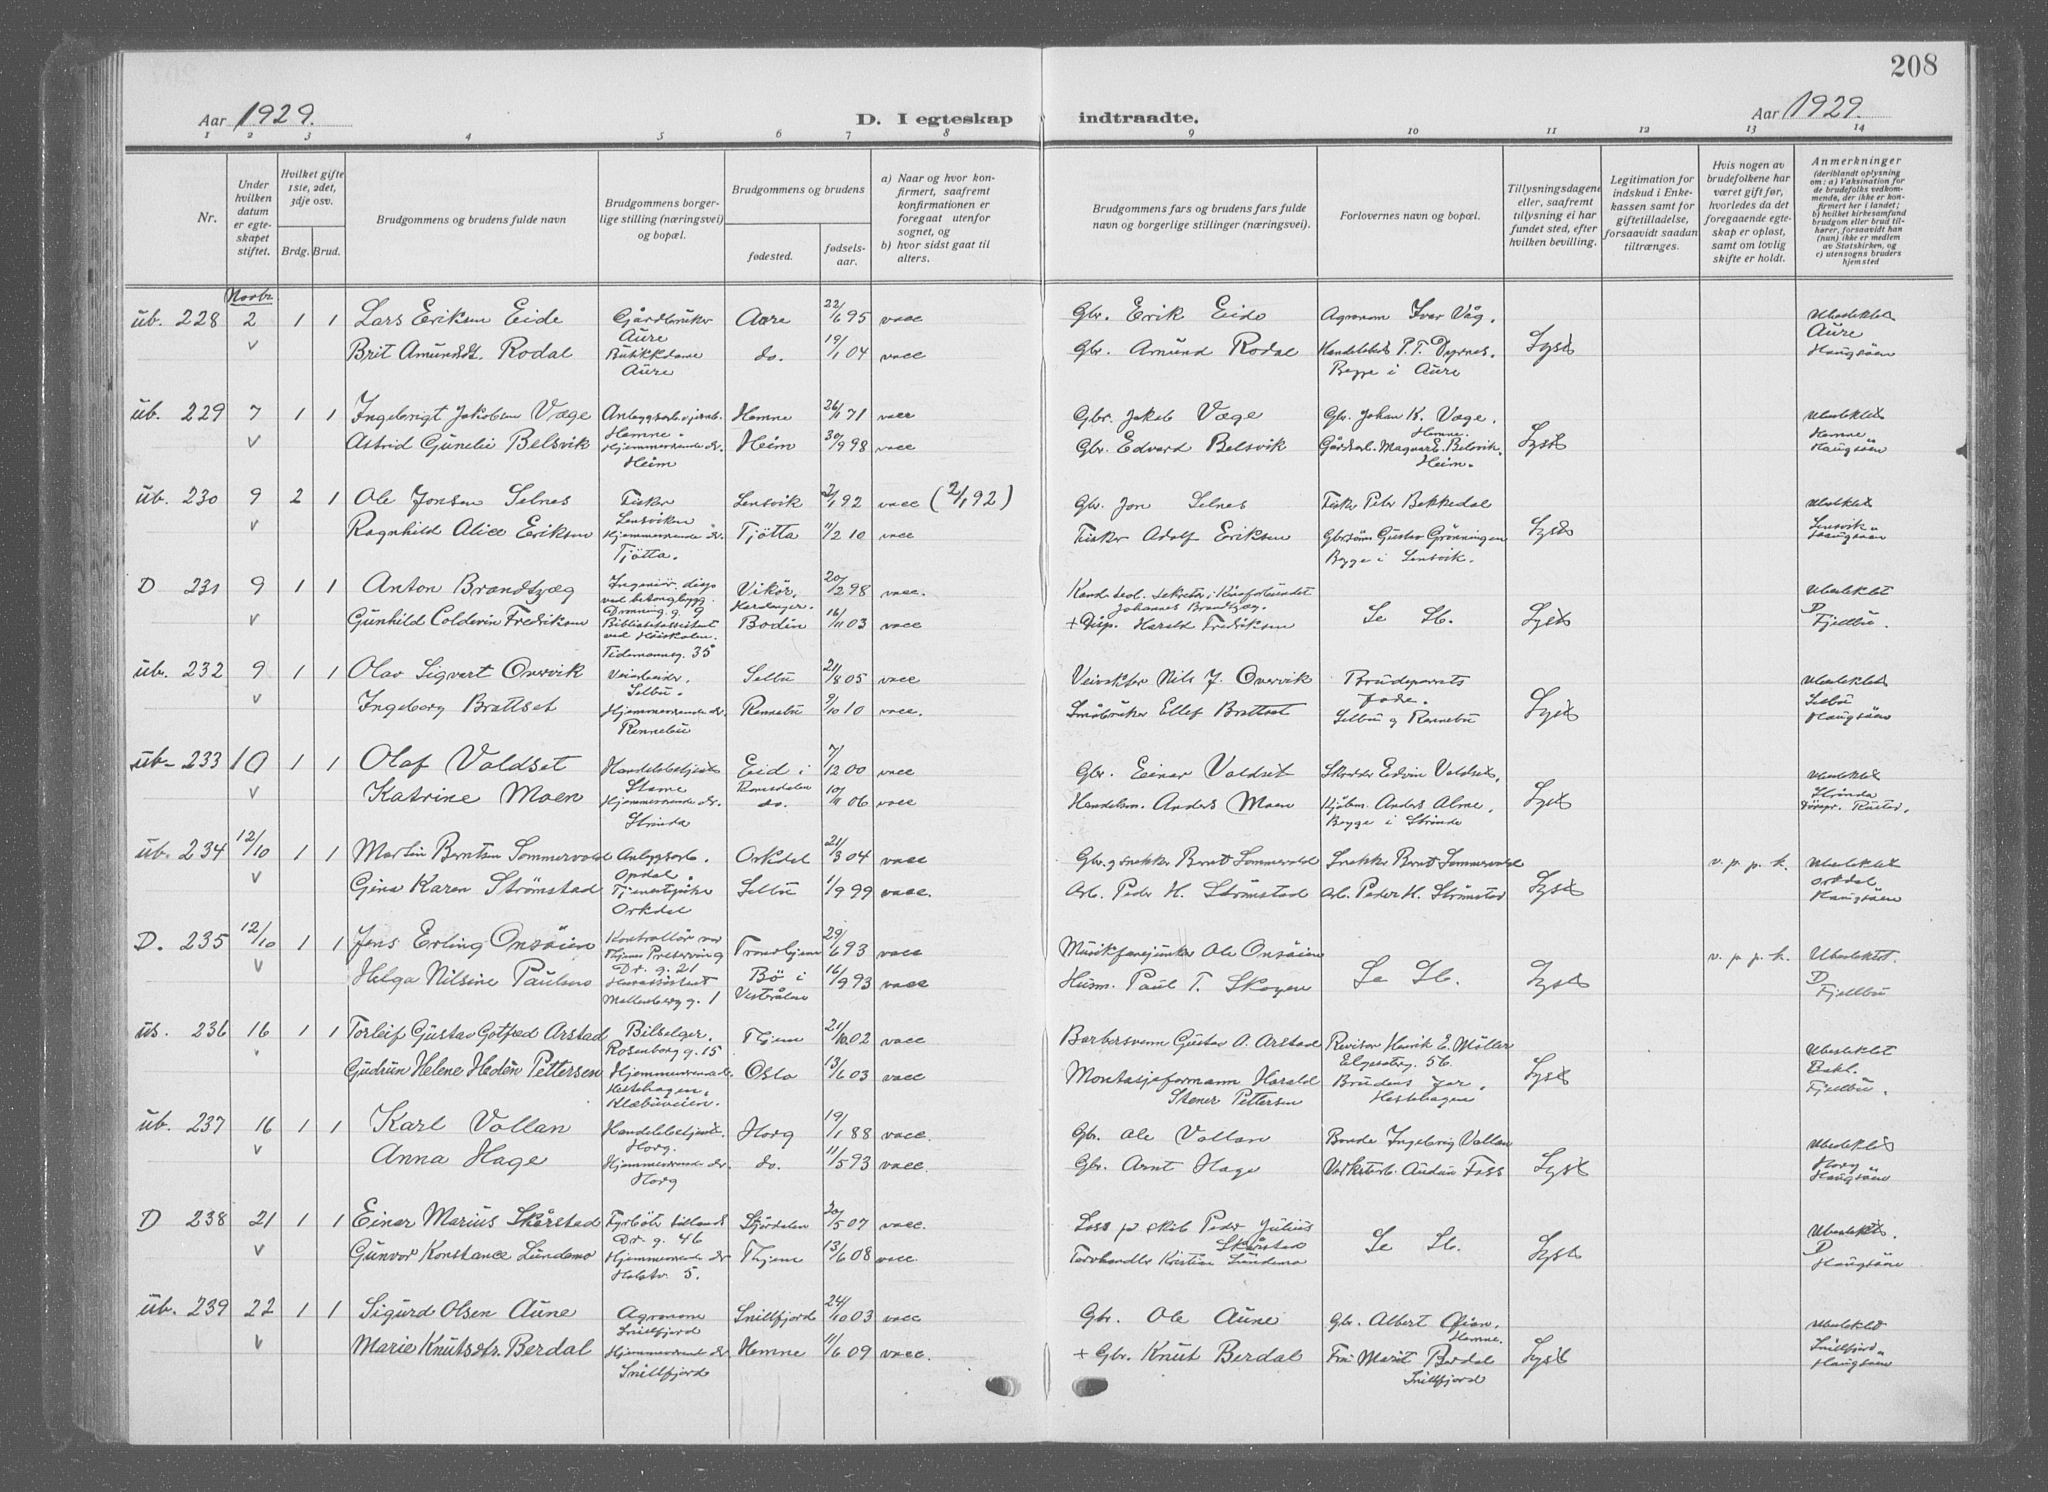 208
Aar 1929.
D. I egteskap indtraadte.
Aar 1929.
1 2 3 4 5 6 7 8 9 10 11 12 13 14
Nr.
Under hvilken datum er egteskapet stiftet.
Hvilket gifte 1ste, 2det, 3dje osv.
Brdg. Brud.
Brudgommens og brudens fulde navn
Brudgommens borgerlige stilling (næringsvei) og bopæl.
Brudgommens og brudens
fødested.
fødselsaar.
a) Naar og hvor konfirmert, saafremt konfirmationen er foregaat utenfor sognet, og
b) hvor sidst gaat til alters.
Brudgommens fars og brudens fars fulde navn og borgerlige stillinger (næringsvei).
Forlovernes navn og bopæl.
Tillysningsdagene eller, saafremt tillysning ei har fundet sted, efter hvilken bevilling.
Legitimation for indskud i Enkekassen samt for giftetilladelse, forsaavidt saadan tiltrænges.
Hvis nogen av brudefolkene har været gift før, hvorledes da det foregaaende egteskap er opløst, samt om lovlig skifte er holdt.
Anmerkninger (deriblandt oplysning om: a) Vaksination for de brudefolks vedkommende, der ikke er konfirmert her i landet; b) hvilket kirkesamfund brudgom eller brud tilhører, forsaavidt han (hun) ikke er medlem av Statskirken, og c) utensogns bruders hjemsted
Novbr.
ub. 228 2 1 1 Lars Eriksen Eide Gårdbruker Aure 22/6 95 vacc Gbr. Erik Eide Agronom Ivar Våg. Ubeslektet
Aure Lyst Aure
v Brit Amundsdt. Rodal Butikkdame do. 19/1 04 vacc Gbr. Amund Rodal P. T. Dyrnes. Haugsöen
Aure Begge i Aure
ub. 229 7 1 1 Ingebrigt Jakobsen Væge Hemne 26/11 71 vacc Gbr. Jakob Væge Gbr. Johan K. Væge. Ubeslektet
Hemne Hemne. Lyst Hemne
v Astrid Gunelie Belsvik Hjemmeværende dr. Heim 30/9 98 vacc Gbr. Edvard Belsvik Belsvik. Haugsöen
Heim Heim.
ub. 230 9 2 1 Ole Jonsen Selnes Fisker Lensvik 2/1 92 vacc (2/1 92) Gbr. Jon Selnes Fisker Peter Bekkedal Ubeslektet
Lensviken Lyst Lensvik
v Ragnhild Alice Eriksen Hjemmeværende dr. Tjötta 11/2 10 vacc Fisker Adolf Eriksen Gbrsönn Gustav Grönningen Haugsöen
Tjötta. Begge i Lensvik.
D 231 9 1 1 Anton Brandtzæg Ingeniör Vikör, 20/2 98 vacc. Kand. teol. sekretær i Kinaforbundet Ubeslektet
ved betongbygg. Hardanger. Johannes Brandtzæg. D
Dronning. g. 9
v Gunhild Coldevin Fredriksen Biblioteksassistent Bodin 16/11 03 vacc + Disp. Harald Fredriksen Se Sb. Lyst Fjellbu.
ved Höiskolen.
Tidemannsg. 35
ub. 232 9 1 1 Olav Sigvart Overvik Veiarbeider. Selbu 21/8 05 vacc Veivokter Nils J. Overvik Brudeparrets Ubeslektet
Selbu. fedre. Lyst Selbu
v Ingeborg Brattset Hjemmeværende dr. Rennebu 9/10 10 vacc. Småbruker Ellef Brattset Selbu og Rennebu Haugsöen
Rennebu
ub. 233 10 1 1 Olaf Valdset Handelsbetjent Eid i 7/12 00 vacc Gbr. Einar Valdset Skredder Edvin Valdset, Ubeslektet
Romsdalen Lyst Strinda
v Katrine Moen Hjemmeværende dr. do. 10/11 06 vacc Handelsm. Anders Moen Kjöbm. Anders Alme.
Strinda Begge i Strinda
ub. 234 12/10 1 1 Martin Berntsen Sommervold Anleggsarb. Orkdal 21/3 04 vacc Gbr. og snekker Bernt Sommervold Snekker Bernt Sommervold v. p. p. k. Ubeslektet
Opdal Lyst Orkdal
v Gina Karen Strömstad Tjenestpike Selbu 1/9 99 vacc. Arb. Peder H. Strömstad Arb. Peder H. Strömstad Haugsöen
Orkdal
D. 235 12/10 1 1 Jens Erling Onsöien Kontrollör ved Trondhjem 29/6 93 vacc Ole Onsöien v. p. p. k. Ubeslektet.
Thjems Preserving D
Dr. g. 21
v Helga Nilsine Paulsen Bö i 16/9 93 vacc Husm. Paul T. Skogen Se Sb. Lyst Fjellbu
Mellenberg g. 1 Vesterålen
us. 236 16 1 1 Torleif Gustav Gotfred Arstad Bileelger. Thjem 21/10 02 vacc Barbersvenn Gustav A. Arstad Revisor Henrik E. Möller Ubeslektet
Rosenborg g. 15 56 Lyst Bakl.
v Gudrun Helene Hedén Pettersen Hjemmeværende Oslo 13/6 03 vacc Montasjeformann Harald Brudens far. Fjellbu.
Hestehagen, Stener Pettersen Hestehagen
Klæbuveien.
ub. 237 16 1 1 Karl Vollan Handelsbetjent Horg 19/1 88 vacc. Gbr. Ole Vollan Bonde Ingebrig Vollan Ubeslektet
Horg. Lyst Horg
v Anna Hage Hjemmeværende dr. do. 11/5 93 vacc. Gbr. Arnt Hage Foss Haugsöen
Horg
D 238 21 1 1 Einar Marius Skårstad Fyrböter Stjördalen 20/5 07 vacc. Loss på skib Peder Julius Ubeslektet.
Dr. g. 46 Skårstad D
v Gunvor Konstance Lundemo Hjemmeværende dr Thjem 13/6 08 vacc. Torvhandler Kristian Lundemo Se Sb. Lyst Haugsöen
5.
ub. 239 22 1 1 Sigurd Olsen Aune Agronom Snillfjord 24/10 03 vacc Gbr. Ole Aune Gbr. Albert Öien. Ubeslektet
Snillfjord Hemne. Lyst Snillfjord
v Marie Knutsdtr. Berdal Hjemmeværende dr Hemne 11/6 09 vacc. + Gbr. Knut Berdal Fru Marit Berdal Haugsöen
Snillfjord Snillfjord